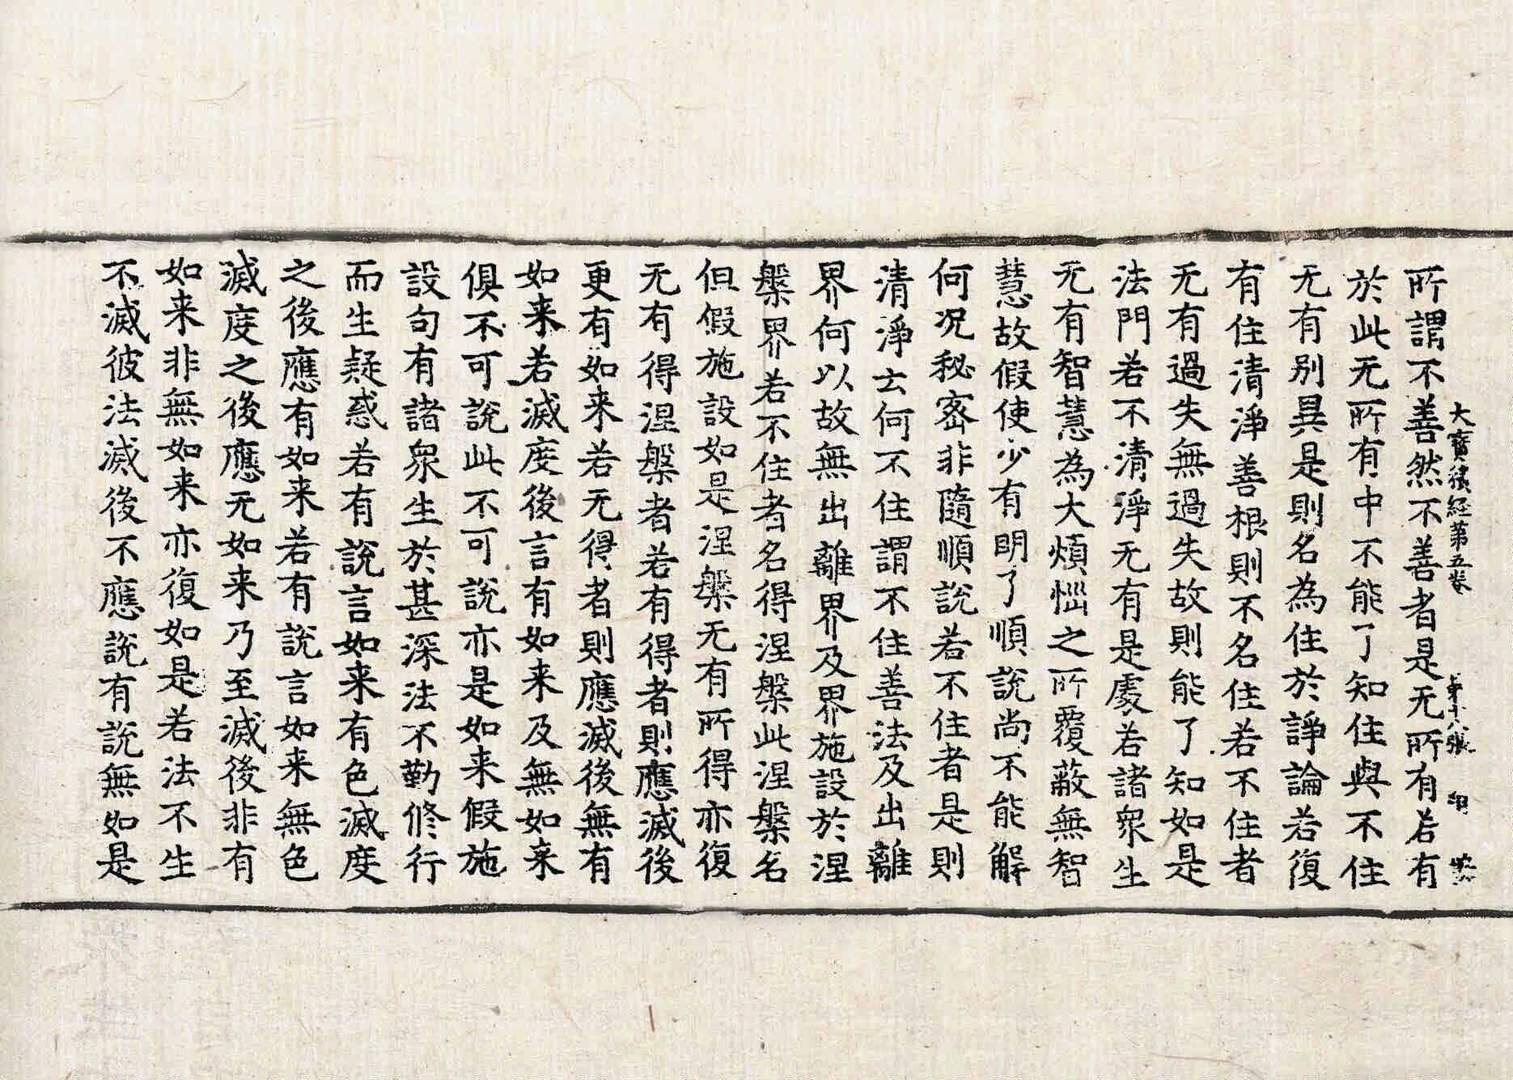 大寶積經第五卷 第十張 翔
所謂不善然不善者是无所有若有
於此无所有中不能了知住與不住
无有别異是則名為住於諍論若復
有住清淨善根則不名住若不住者
无有過失無過失故則能了知如是
法門若不清淨无有是處若諸衆生
无有智慧為大煩惱之所覆蔽無智
慧故假使少有明了順說尚不能解
何况秘密非隨順說若不住者是則
清淨云何不住謂不住善法及出離
界何以故無出離界及界施設於涅
槃界若不住者名得涅槃此涅槃名
但假施設如是涅槃无有所得亦復
无有得涅槃者若有得者則應滅後
更有如来若无得者則應滅後無有
如来若滅度後言有如来及無如来
俱不可說此不可說亦是如来假施
設句有諸衆生於甚深法不勤修行
而生疑惑若有說言如来有色滅度
之後應有如来若有說言如来無色
滅度之後應无如来乃至滅後非有
如来非無如来亦復如是若法不生
不滅彼法滅後不應說有說無如是